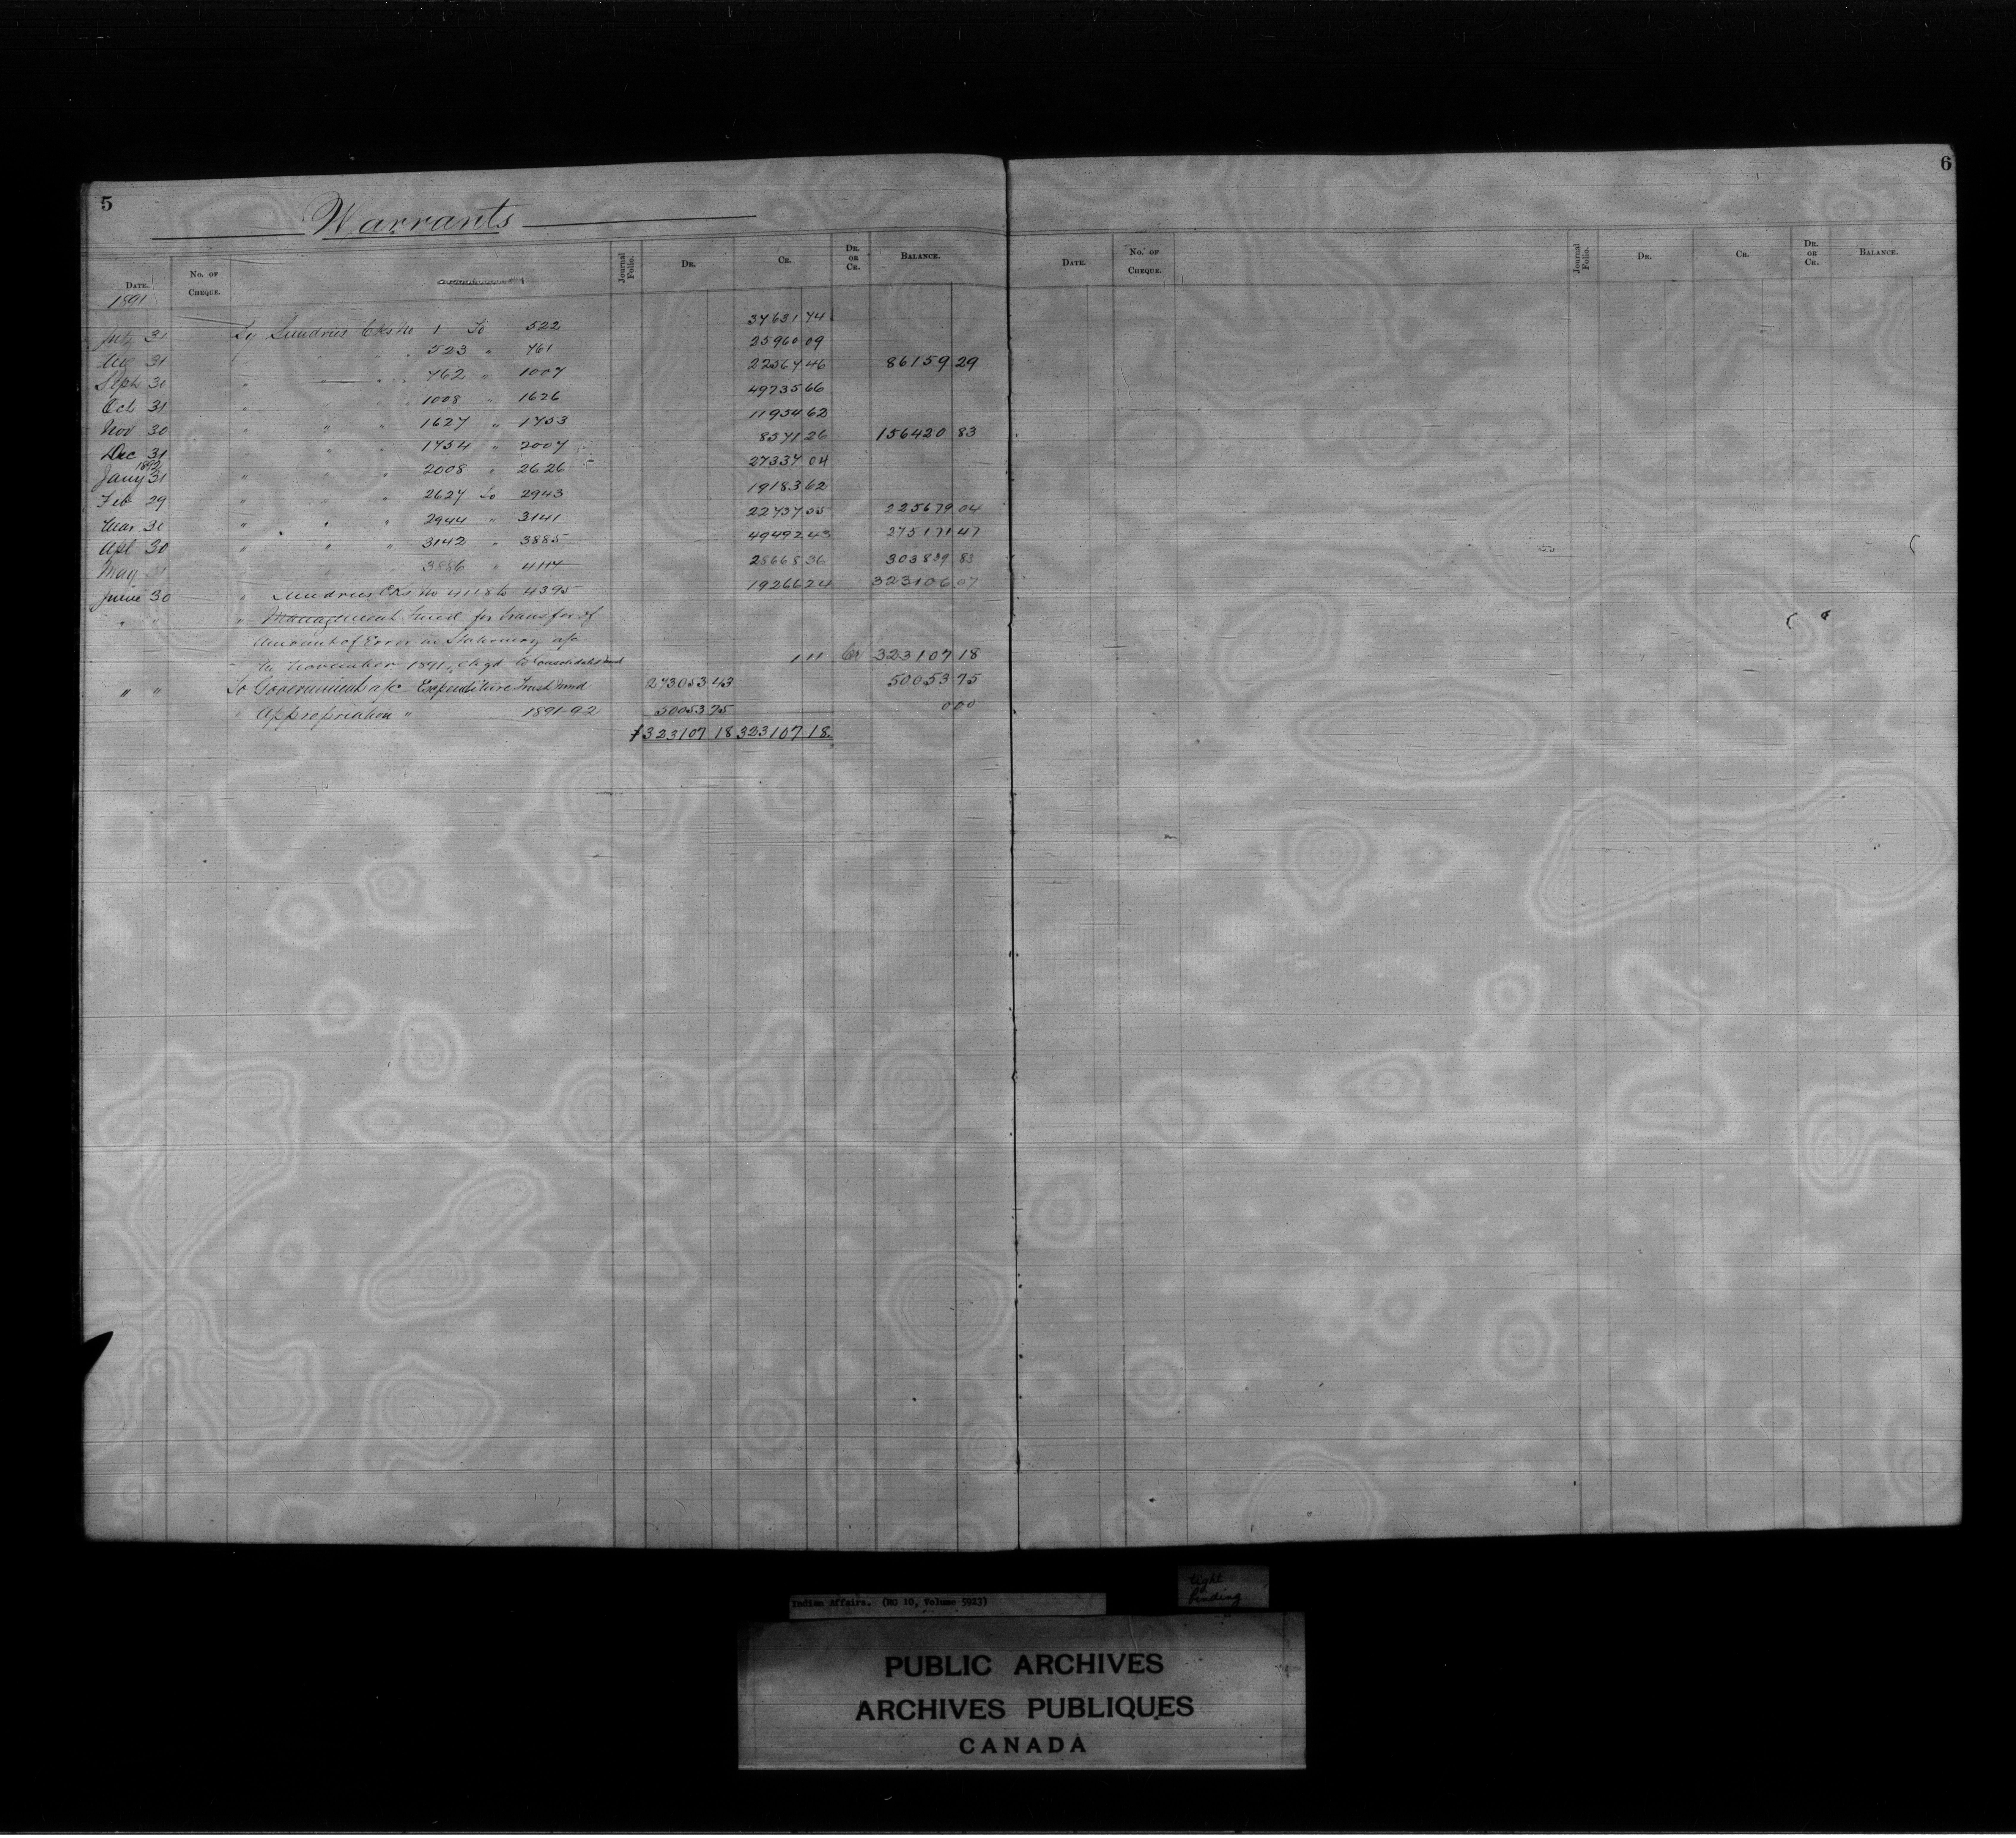 5
Warrants
Date. No. of Cheque. Journal Folio. Dr. Cr. Dr. or Cr. Balance.
1891
July 31 By Sundries Cks No 1 To 522 37631 74
Aug 31 " " " 523 " 761 25960 09
Sept 30 " " " 762 " 1007 22567 46 86159 29
Oct 31 " " " 1008 " 1626 49735 66
Nov 30 " " " 1627 " 1753 11954 62
Dec 31 " " " 1754 " 2007 8571 26 156420 83
1892
Jany 31 " " " 2008 " 2626 27337 04
Feb 29 " " " 2627 to 2943 19183 62
Mar 31 " " " 2944 " 3141 22737 55 225679 04
Apl 30 " " " 3142 " 3885 49492 43 275171 47
May 31 " " " 3886 " 4117 28668 36 303839 83
June 30 " Sundries Cks No 4118 to 4395 19266 24 323106 07
" " " Management Fund for transfer of
Amount of Error in Stationery a/c
in November 1891, chgd to Consolidated Fund 1 11 Cr 323107 18
" " To Government a/c Expenditure Trust Fund 273053 43 50053 75
" Appropriation " 1891-92 50053 75 0 00
$323107 18 323107 18
6
Date. No. of Cheque. Journal Folio. Dr. Cr. Dr. or Cr. Balance.
Indian Affairs. (RG 10, Volume 5923)
tight
binding
PUBLIC ARCHIVES
ARCHIVES PUBLIQUES
CANADA